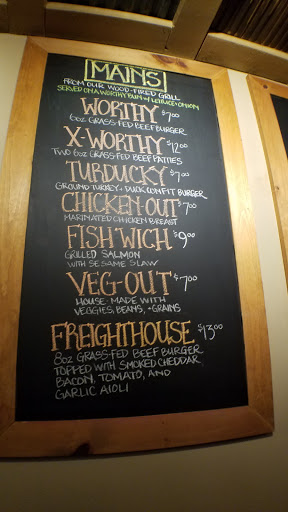 MAINS
FROM OUR WOOD-FIRED GRILL
SERVED ON A WORTHY BUN W/ LETTUCE + ONION
WORTHY $7.00
6OZ GRASS-FED BEEF BURGER
X-WORTHY $12.00
TWO 6OZ GRASS-FED BEEF PATTIES
TURDUCKY $7.00
GROUND TURKEY + DUCK CONFIT BURGER
CHICKEN OUT $7.00
MARINATED CHICKEN BREAST
FISH'WICH $9.00
GRILLED SALMON
WITH SESAME SLAW
VEG-OUT $7.00
HOUSE-MADE WITH
VEGGIES, BEANS, +GRAINS
FREIGHTHOUSE $13.00
8OZ GRASS-FED BEEF BURGER
TOPPED WITH SMOKED CHEDDAR,
BACON, TOMATO, AND
GARLIC AIOLI